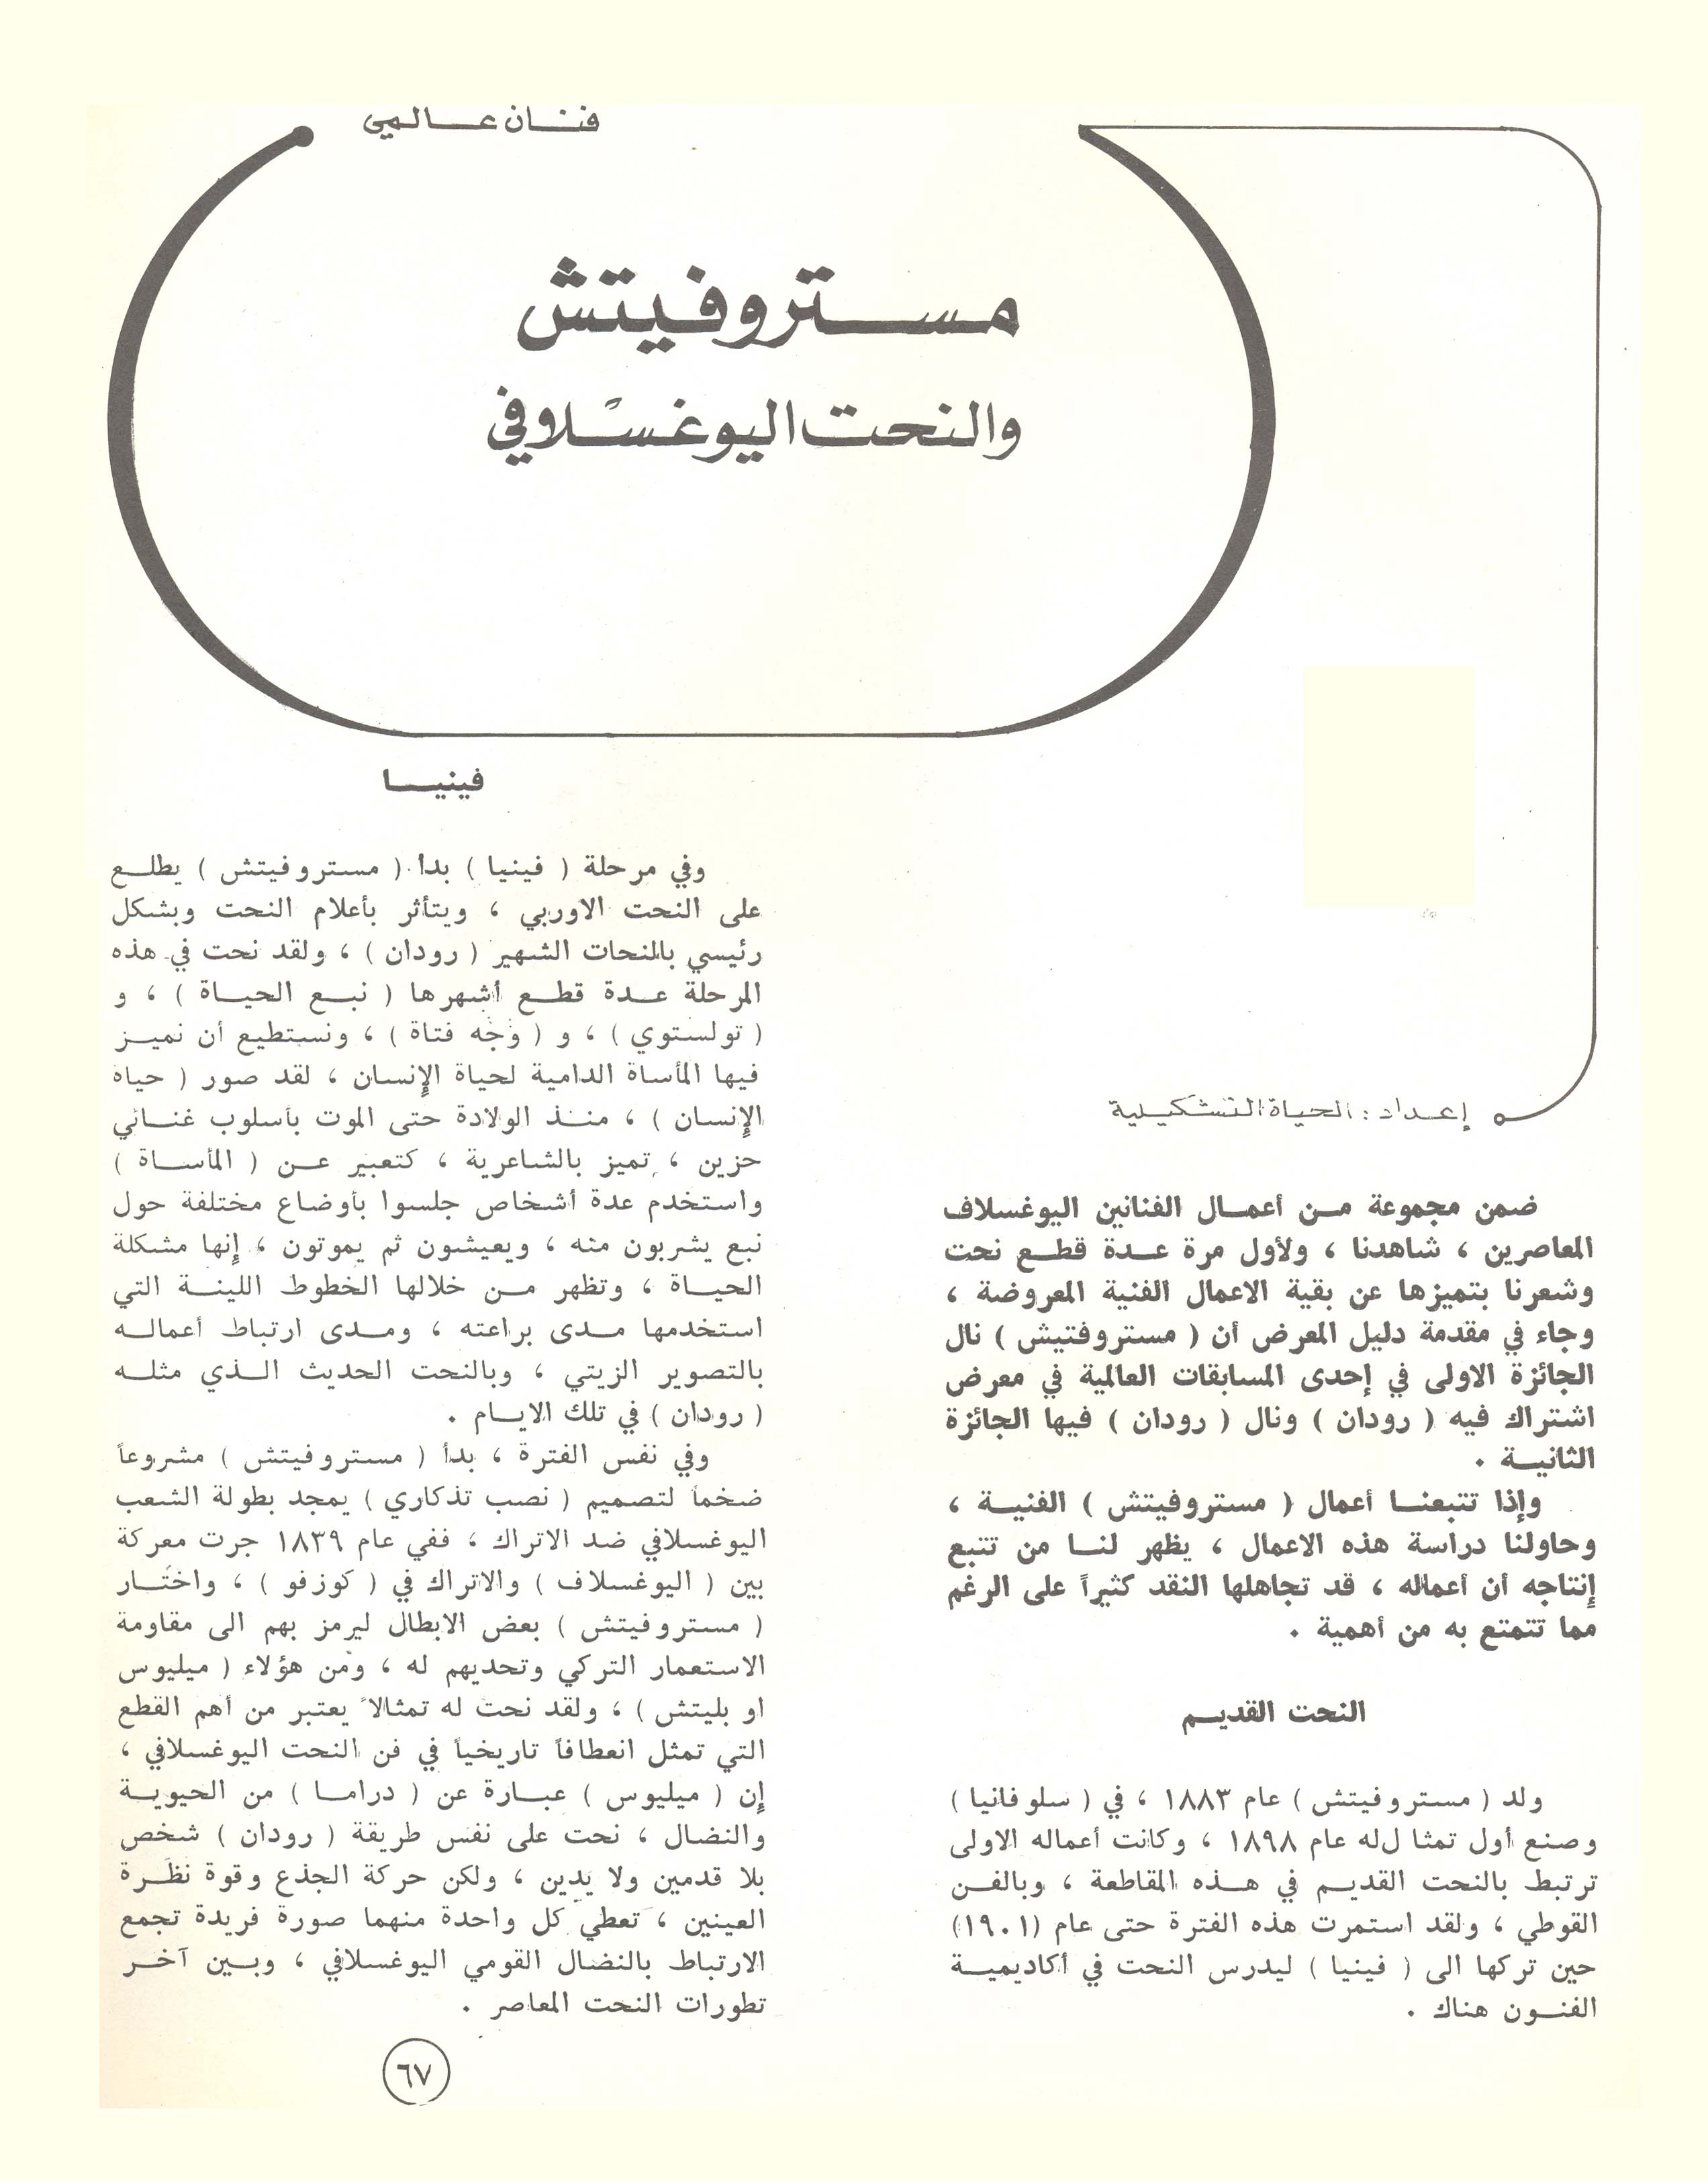 فنان عالمي
مستروفيتش
والنحت اليوغسلافي
إعداد : الحياة التشكيلية
ضمن مجموعة من أعمال الفنانين اليوغسلاف
المعاصرين ، شاهدنا ، ولأول مرة عدة قطع نحت
وشعرنا بتميزها عن بقية الاعمال الفنية المعروضة ،
وجاء في مقدمة دليل المعرض أن ( مستروفتيش ) نال
الجائزة الاولى في إحدى المسابقات العالمية في معرض
اشتراك فيه ( رودان ) ونال ( رودان ) فيها الجائزة
الثانية .
وإذا تتبعنا أعمال ( مستروفيتش ) الفنية ،
وحاولنا دراسة هذه الاعمال ، يظهر لنا من تتبع
إنتاجه أن أعماله ، قد تجاهلها النقد كثيراً على الرغم
مما تتمتع به من أهمية .
النحت القديم
ولد ( مستروفيتش ) عام ١٨٨٣ ، في ( سلوفانيا )
وصنع أول تمثا ل له عام ١٨٩٨ ، وكانت أعماله الاولى
ترتبط بالنحت القديم في هذه المقاطعة ، وبالفن
القوطي ، ولقد استمرت هذه الفترة حتى عام (١٩٠١)
حين تركها الى ( فينيا ) ليدرس النحت في أكاديمية
الفنون هناك .
فينيا
وفي مرحلة ( فينيا ) بدأ ( مستروفيتش ) يطلع
على النحت الاوربي ، ويتأثر بأعلام النحت وبشكل
رئيسي بالنحات الشهير ( رودان ) ، ولقد نحت في هذه
المرحلة عدة قطع أشهرها ( نبع الحياة ) ، و
( تولستوي ) ، و ( وجه فتاة ) ، ونستطيع أن نميز
فيها المأساة الدامية لحياة الإنسان ، لقد صور ( حياة
الإنسان ) ، منذ الولادة حتى الموت بأسلوب غنائي
حزين ، تميز بالشاعرية ، كتعبير عن ( المأساة )
واستخدم عدة أشخاص جلسوا بأوضاع مختلفة حول
نبع يشربون منه ، ويعيشون ثم يموتون ، إنها مشكلة
الحياة ، وتظهر من خلالها الخطوط اللينة التي
استخدمها مدى براعته ، ومدى ارتباط أعماله
بالتصوير الزيتي ، وبالنحت الحديث الذي مثله
( رودان ) في تلك الايام .
وفي نفس الفترة ، بدأ ( مستروفيتش ) مشروعاً
ضخماً لتصميم ( نصب تذكاري ) يمجد بطولة الشعب
اليوغسلافي ضد الاتراك ، ففي عام ١٨٣٩ جرت معركة
بين ( اليوغسلاف ) والاتراك في ( كوزفو ) ، واختار
( مستروفيتش ) بعض الابطال ليرمز بهم الى مقاومة
الاستعمار التركي وتحديهم له ، ومن هؤلاء ( ميليوس
او بليتش ) ، ولقد نحت له تمثالاً يعتبر من أهم القطع
التي تمثل انعطافاً تاريخياً في فن النحت اليوغسلافي ،
إن ( ميليوس ) عبارة عن ( دراما ) من الحيوية
والنضال ، نحت على نفس طريقة ( رودان ) شخص
بلا قدمين ولا يدين ، ولكن حركة الجذع وقوة نظرة
العينين ، تعطي كل واحدة منهما صورة فريدة تجمع
الارتباط بالنضال القومي اليوغسلافي ، وبين آخر
تطورات النحت المعاصر .
٦٧